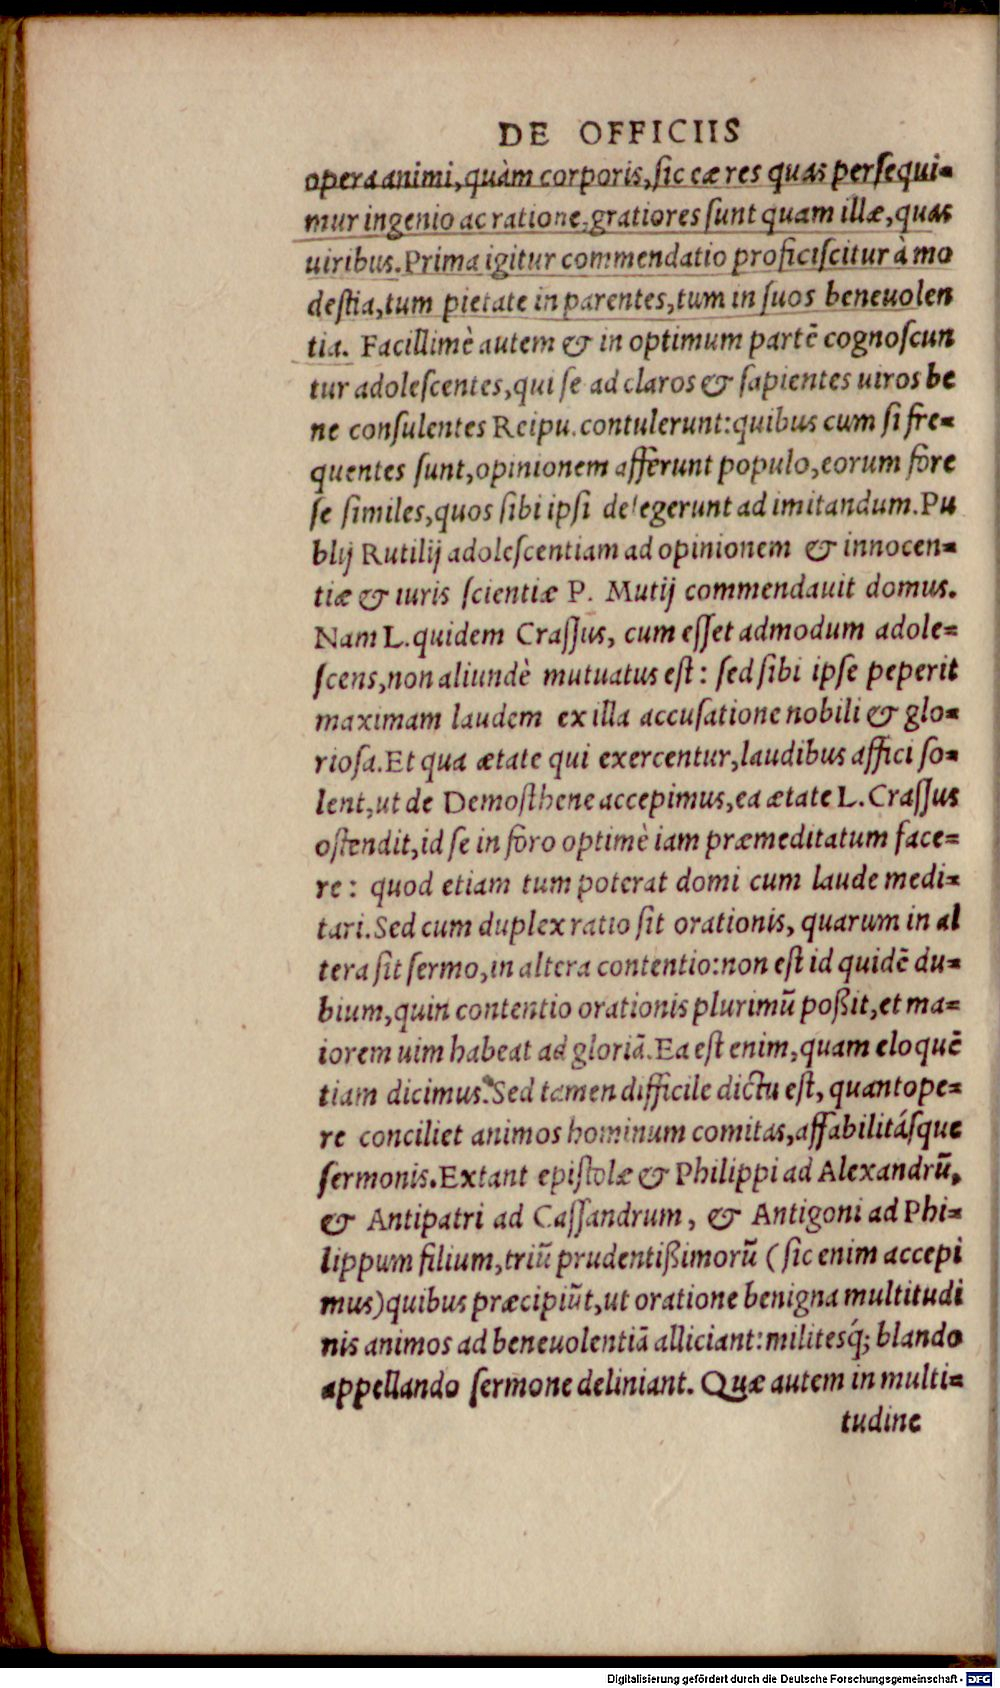 DE OFFICIIS
opera animi, quàm corporis, sic eæ res quas persequi-
mur ingenio ac ratione, gratiores sunt quam illæ, quas
uiribus. Prima igitur commendatio proficiscitur à mo
destia, tum pietate in parentes, tum in suos beneuolen
tia. Facillimè autem & in optimum partē cognoscun
tur adolescentes, qui se ad claros & sapientes uiros be
ne consulentes Reipu. contulerunt: quibus cum si fre-
quentes sunt, opinionem afferunt populo, eorum fore
se similes, quos sibi ipsi delegerunt ad imitandum. Pu
blij Rutilij adolescentiam ad opinionem & innocen-
tiæ & iuris scientiæ P. Mutij commendauit domus.
Nam L. quidem Crassus, cum esset admodum adole-
scens, non aliundè mutuatus est: sed sibi ipse peperit
maximam laudem ex illa accusatione nobili & glo-
riosa. Et qua ætate qui exercentur, laudibus affici so-
lent, ut de Demosthene accepimus, ea ætate L. Crassus
ostendit, id se in foro optimè iam præmeditatum face-
re: quod etiam tum poterat domi cum laude medi-
tari. Sed cum duplex ratio sit orationis, quarum in al
tera sit sermo, in altera contentio: non est id quidē du-
bium, quin contentio orationis plurimū poßit, et ma-
iorem uim habeat ad gloriā. Ea est enim, quam eloquē
tiam dicimus. Sed tamen difficile dictu est, quantope-
re conciliet animos hominum comitas, affabilitásque
sermonis. Extant epistolæ & Philippi ad Alexandrū,
& Antipatri ad Cassandrum, & Antigoni ad Phi-
lippum filium, triū prudentißimorū (sic enim accepi
mus) quibus præcipiūt, ut oratione benigna multitudi
nis animos ad beneuolentiā alliciant: militesq́; blando
appellando sermone deliniant. Quæ autem in multi-
tudine
Digitalisierung gefördert durch die Deutsche Forschungsgemeinschaft - DFG